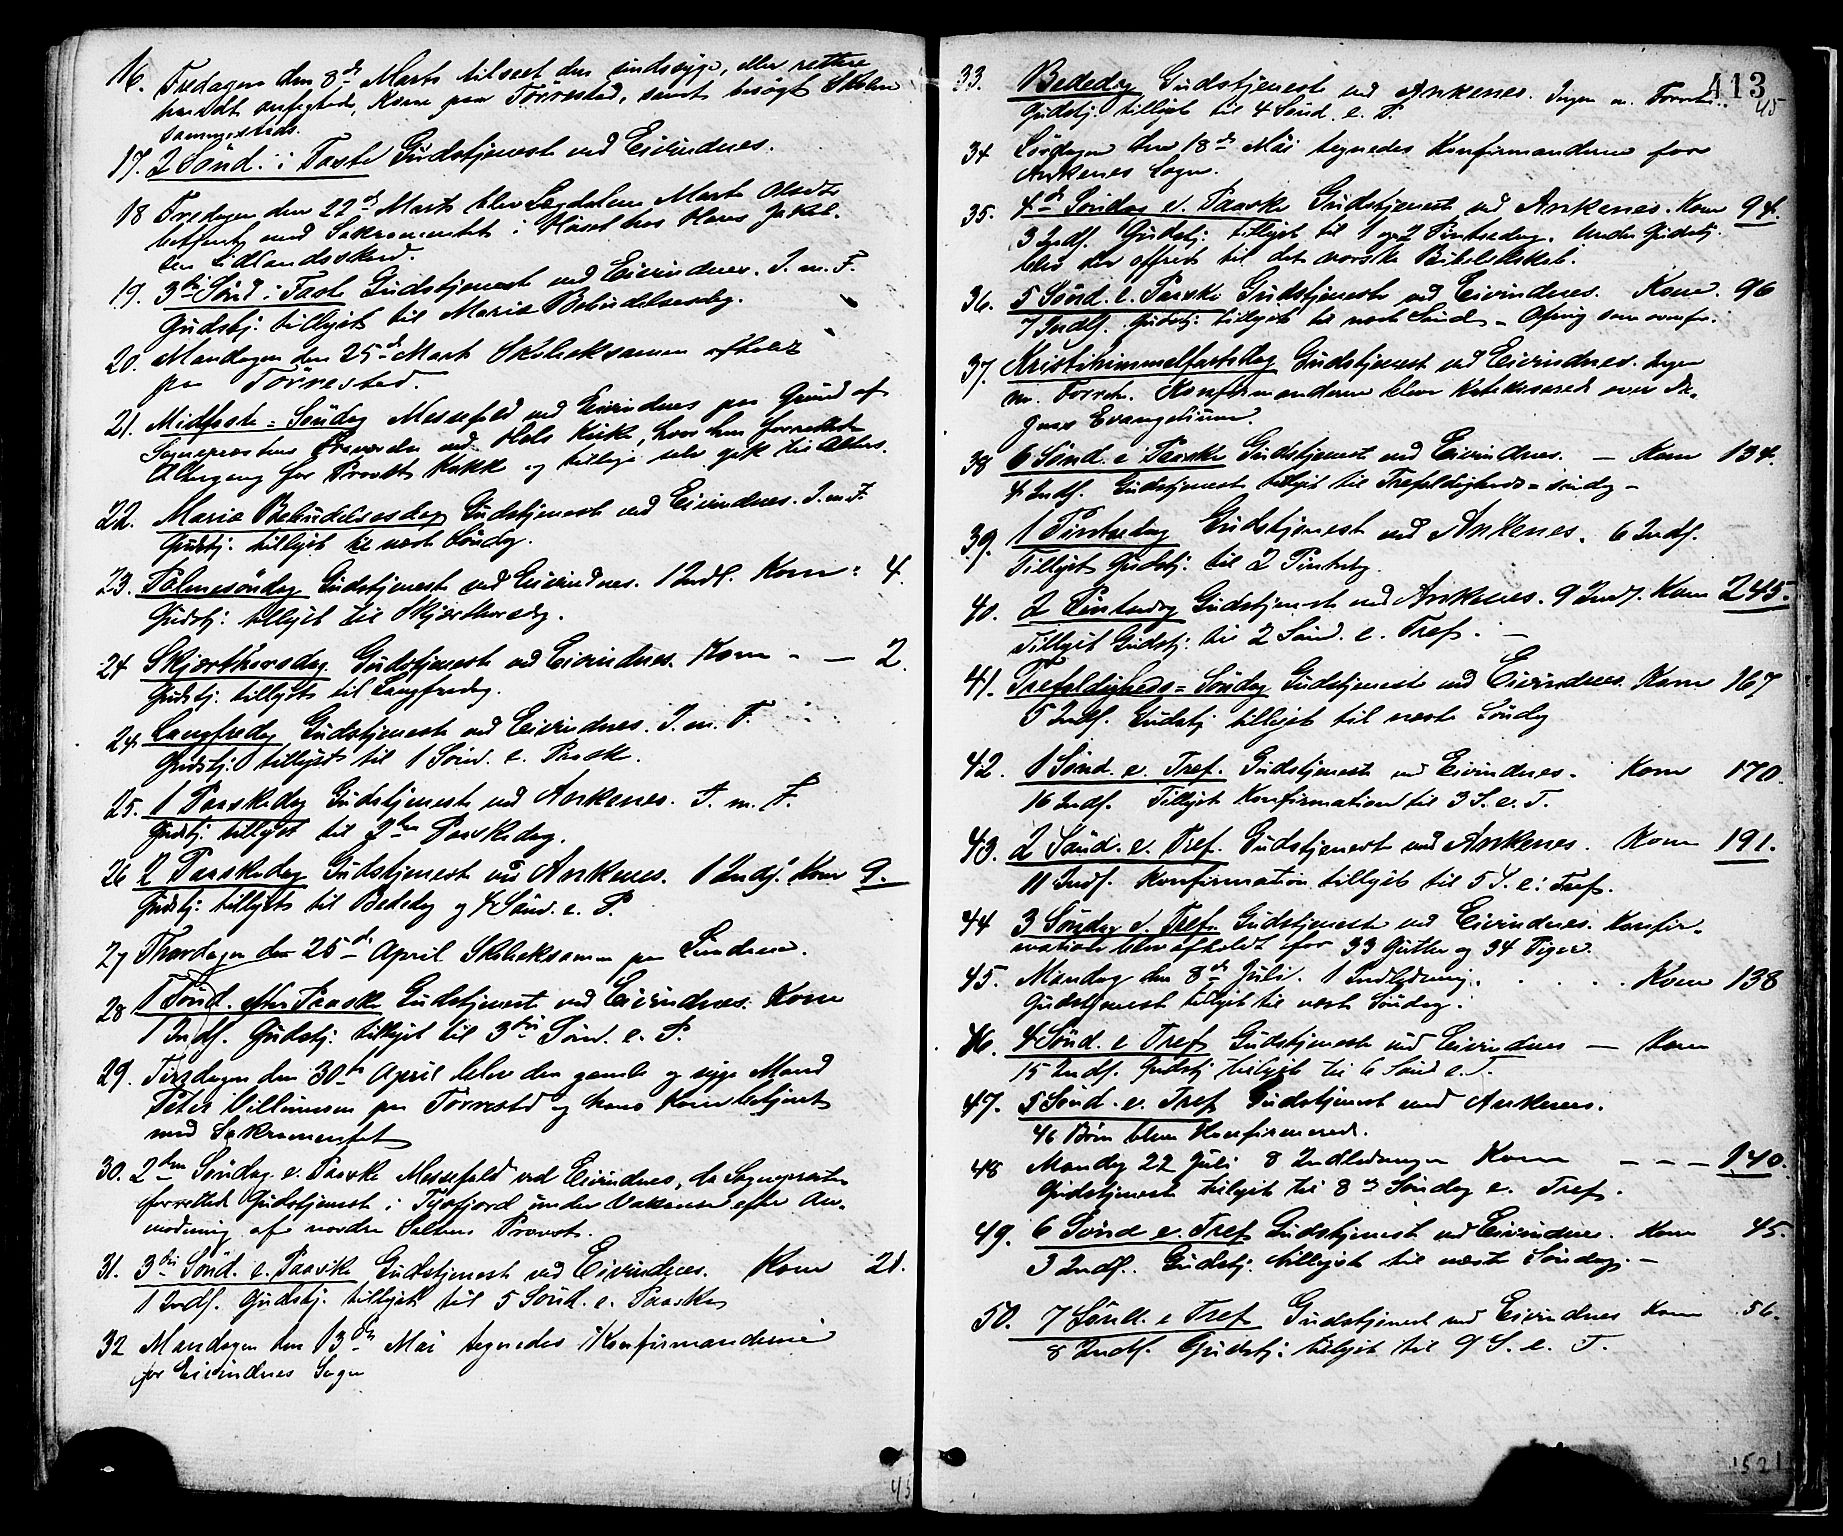 16. Fredagen den 8de Marts tilseet den sindssyge, eller rettere
haardt anfegtede, Kone paa Tørrestad, samt besøgt Skolen
sammesteds.
17. 2 Sönd. i Faste Gudstjeneste ved Eivindnes.
18 Fredagen den 22de Marts blev Marte
betjent med Sakramentet i hos Hans
19. 3die Sönd i Fast Gudstjenest ved Eivindnes. I. m. F.
Gudstj. tillyst til Mariæ Bebudelsesdag.
20. Mandagen den 25de Mart Skoleeksamen afholdt
paa Törrestad.
21. Midfaste=Söndag Messefald ved Eivindnes paa Grund af
Sognepræstens ved Hols Kirke, hvor han forrettede
Altergang for Provst og tillige selv gik til Alters.
22. Mariæ Bebudelsesdag Gudstjeneste ved Eivindnes. I. m. F.
Gudstj. tillyst til næste Söndag.
23. Palmesöndag Gudstjeneste ved Eivindnes. 1 Indl. Kom: 4.
Gudstj: tillyst til Skjærthorsdag.
24 Skjærthorsdag. Gudstjeneste ved Eivindnes. Kom - — 2.
Gudstj. tillyst til Langfredag.
24. Langfredag Gudstjeneste ved Eivindnes. I. m. F.
Gudstj: tillyst til 1 Sönd. e. Paask.
25. 1 Paaskedag Gudstjeneste ved Ankenes. I. m. F.
Gudstj: tillyst til 2den Paaskedag.
26 2 Paaskedag Gudstjenest ved Ankenes. 1 Indl. Kom 9.
Gudstj: tillyst til Bededag og 4 Sönd. e. P.
27 Thorsdagen den 25de April Skoleeksamen paa
28 1 Sönd. efter Paaske Gudstjenest ved Eivindnes. Kom
1 Indl. Gudstj: tillyst til 3die Sönd. e. P.
29. Tirsdagen den 30te April blev den gamle og syge Mand
Peter Villumsen paa Törrestad og hans Kone betjent
med Sakramentet
30. 2den Söndag e. Paaske Messefald ved Eivindnes, da Sognepræsten
forrettede Gudstjenest i Tysfjord under Vakanse efter An-
modning af nordre Saltens Provst.
31. 3die Sönd. e. Paaske Gudstjenest ved Eivindnes. Kom 21.
1 Indl. Gudstj. tillyst til 5 Sönd. e. Paaske
32 Mandagen den 13de Mai tegnedes Konfirmanderne
for Eivindnes Sogn
45
33. Bededag Gudstjenest ved Ankenes. Ingen m. Forretn.
113
45
Gudstj. tillyst til 4 Sönd. e. P.
34 Lördagen den 18de Mai tegnedes Konfirmanderne for
Ankenes Sogn.
35. 4de Söndag e. Paaske Gudstjenest ved Ankenes. Kom 94.
3 Indl. Gudstj. tillyst til 1 og 2 Pintsedag. Under Gudstj.
blev der offret til det norske Bibelselskab.
36. 5 Sönd. e. Paaske Gudstjeneste ved Eivindnes. Kom. 96
7 Indl. Gudstj. tillyst til næste Sönd - Ofring som ovenfor.
37. Kristihimmelfartsdag Gudstjenest ved Eivindnes. Ingen
m. Forretn. Konfirmanderne blev katekiserede over Da-
gens Evangelium.
38 6 Sönd. e Paaske Gudstjenest ved Eivindnes. — Kom 134.
4 Indl. Gudstjeneste tillyst til Trefoldigheds=söndag -
39. 1 Pintsedag Gudstjenest ved Ankenes. 6 Indl.
Tillyst Gudstj. til 2 Pintsedag.
40. 2 Pintsedag Gudstjeneste ved Ankenes. 9 Indl. Kom 245.
Tillyst Gudstj. til 2 Sönd. e. Tref. —
41. Trefoldigheds=Söndag Gudstjeneste ved Eivindnes. Kom 167
5 Indl. Gudstj tillyst til næste Söndag
42. 1 Sönd. e. Tref. Gudstjeneste ved Eivindnes. Kom 170.
16 Indl. Tillyst Konfirmation til 3 S. e. T.
43. 2 Sönd. e. Tref. Gudstjenest ved Ankenes. Kom 191.
11 Indl. Konfirmation tillyst til 5 S. e: Tref.
44 3 Söndag e. Tref. Gudstjeneste ved Eivindnes. Konfir-
mation blev afholdt for 33 Gutter og 34 Piger.
45. Mandag den 8de Juli. 1 Indledning. . . . . . Kom 138
Gudstjenest tillyst til næste Söndag.
46. 4 Sönd. e Tref Gudstjeneste ved Eivindnes — Kom
15 Indl. Gudstj tillyst til 6 Sönd e. T.
47. 5 Sönd. e. Tref Gudstjenest ved Ankenes.
46 Börn bleve Konfirmerede.
48 Mandag 22 Juli 8 Indledninger Kom — — — 140.
Gudstjeneste tillyst til 8de Söndag e. Tref.
49. 6 Sönd e. Tref Gudstjenest ved Eivindnes. Kom 45.
3 Indl. Gudstj. tillyst til næste Söndag. —
50. 7 Sönd. e Tref Gudstjenest ved Eivindnes Kom 56.
8 Indl. Gudstj: tillyst til 9 S. e. T.
1521